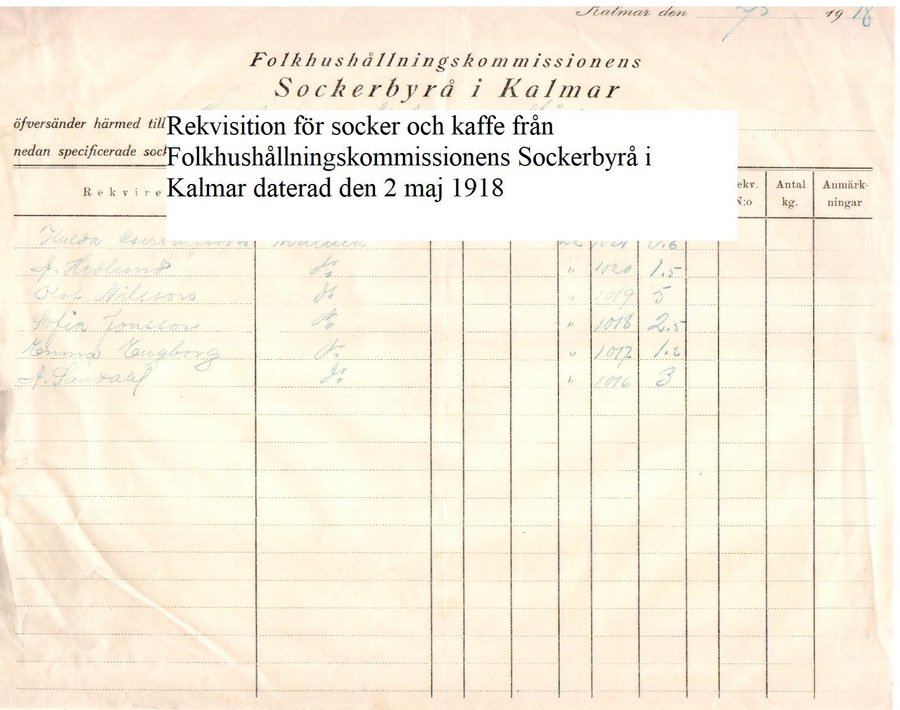 Kalmar den 2/5 1918
Folkhushållningskommissionens
Sockerbyrå i Kalmar
öfversänder härmed till
nedan specificerade sock
Rekvisition för socker och kaffe från
Folkhushållningskommissionens Sockerbyrå i
Kalmar daterad den 2 maj 1918
Rekvire ekv. N:o Antal kg. Anmärk-ningar
Hulda
A. Hedlund do " 1020 1.5
Olof Nilsson do 1019 5
Sofia Jonsson do " 1018 2.5
Emma Engborg do " 1017 1.2
A. Sandahl do " 1016 3